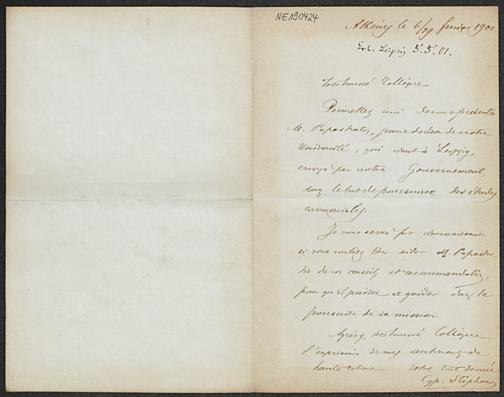 NE190424
Athènes le 6/19 février 1901
Leipzig 5.5.01.
Très honoré Collègue
Permettez moi de vous présenter
M. Papastratos, jeune docteur de notre
Université, qui vient à Leipzig,
envoyé par notre Gouvernement,
dans le but de poursuivre des études
commerciales.
Je vous serai fort reconnaissant
si vous vouliez bien aider M. Papastra-
tos de vos conseils et recommandations,
pour qu'il puisse se guider dans la
poursuite de sa mission
Agréez, très honoré Collègue
l'expression de mes sentiments de
haute estime Votre tout dévoué
Cyp. Stéphanos